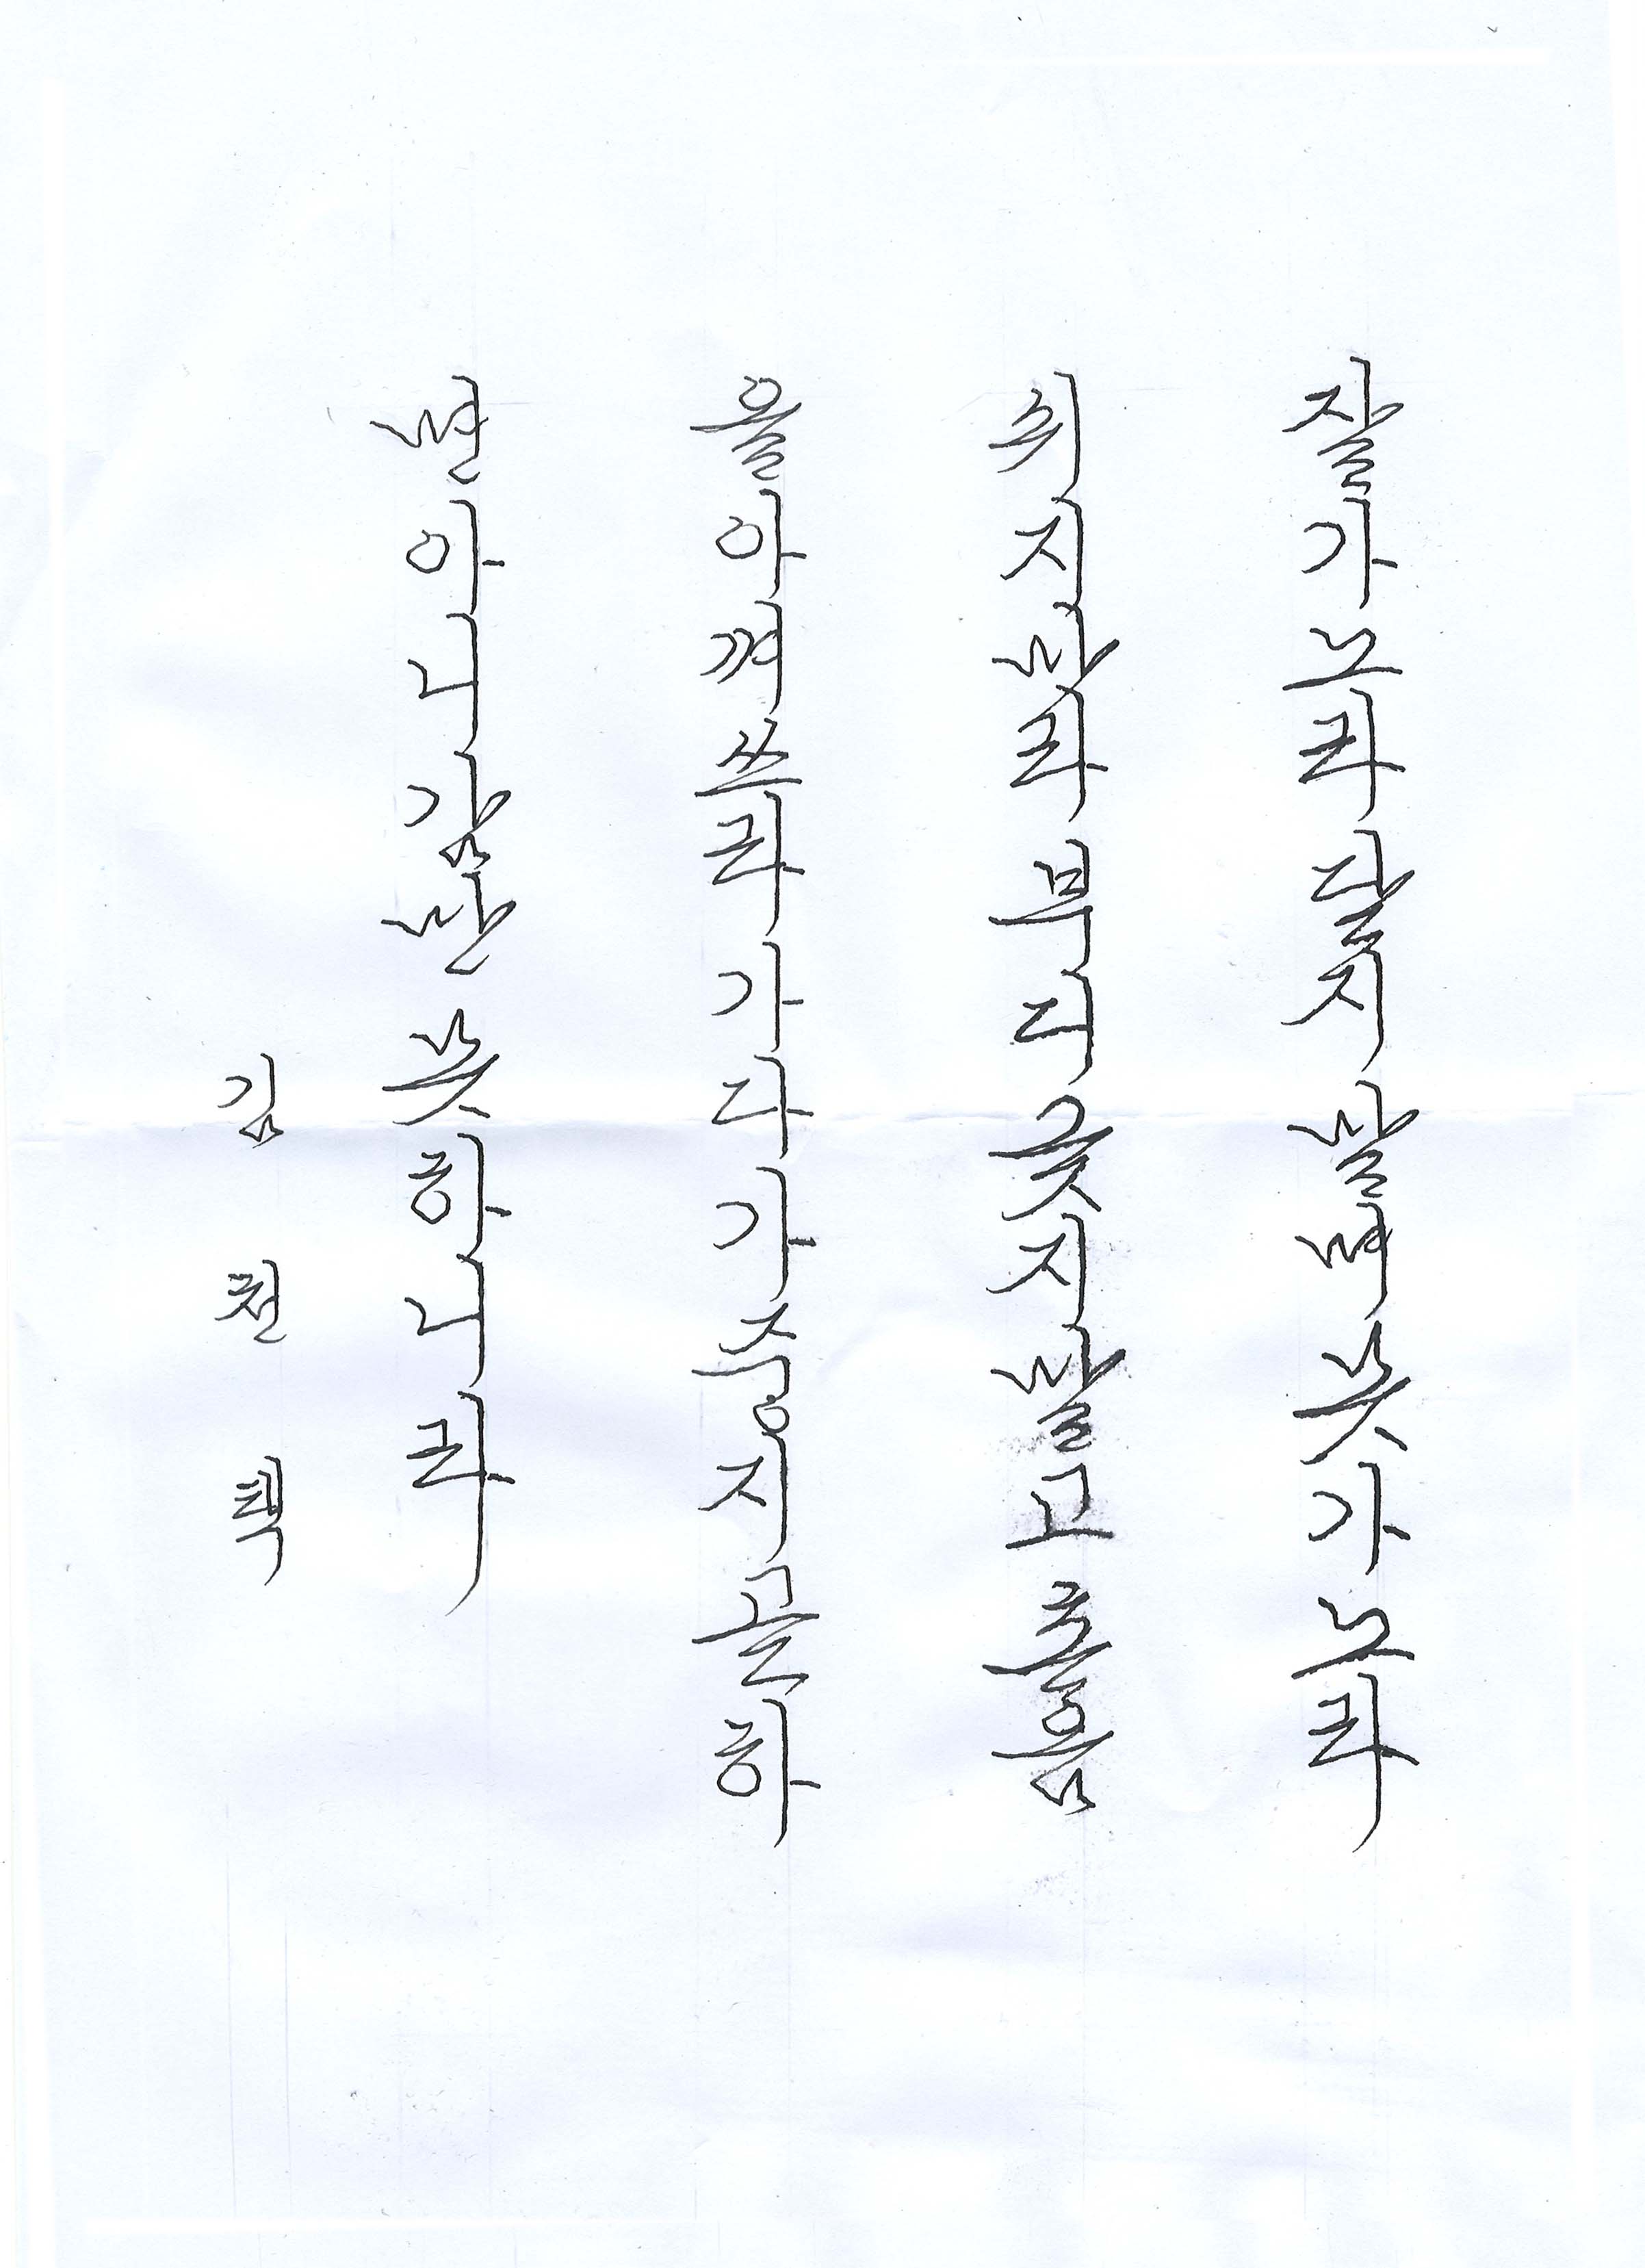 잘가노라 닫지 말며 못가노라
쉬지마라 부디 긋지말고 촌음
을아껴쓰라 가다가중지곧하
면아니감만 못하니라
김 천 택